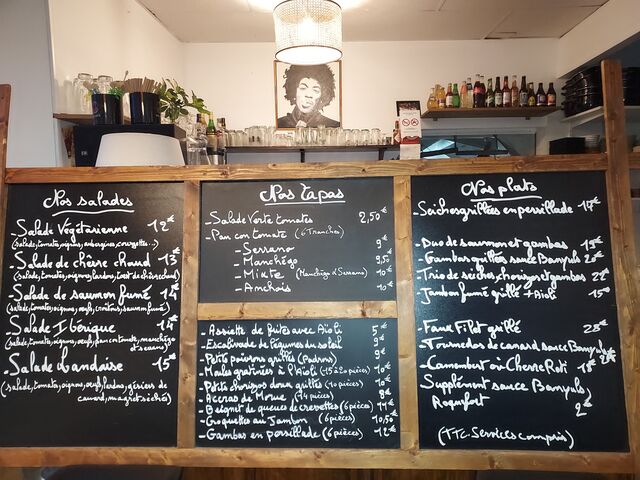 Nos salades
-Salade Végétarienne 12€
(salade, tomates, oignons, aubergines, courgettes...)
-Salade de chèvre chaud 13€
(salade, tomates, oignons, lardons, toast de chèvre chaud)
-Salade de saumon fumé 14€
(salade, tomates, oignons, oeufs, croûtons, saumon fumé)
-Salade Ibérique 14€
(salade, tomates, oignons, oeufs, pan con tomate, manchego et serrano)
-Salade Landaise 15€
(salade, tomates, oignons, oeufs, lardons, gésiers de canard, magret séché)
Nos tapas
-Salade Verte tomates 2,50€
-Pan con tomate (6 Tranches)
-Serrano 9€
-Manchégo 9,50€
-Mixte (Manchégo & Serrano) 10€
-Anchois 10€
-Assiette de frites avec Aïoli 5€
-Escalivade de légumes du soleil 9€
-Petits poivrons grillés (Padrons) 9€
-Moules gratinées à l'Aïoli (15 à 20 pièces) 10€
-Petits chorizos doux grillés (10 pièces) 10€
-Accras de Morue (14 pièces) 8€
-Beignet de queue de crevettes (6 pièces) 11€
-Croquettes au Jambon (6 pièces) 10,50€
-Gambas en persillade (6 pièces) 12€
Nos plats
-Seiches grillées en persillade 17€
-Duo de saumon et gambas 19€
-Gambas grillées sauce Banyuls 20€
-Trio de seiches, chorizo et gambas 22€
-Jambon fumé grillé + Aïoli 15€
-Faux Filet grillé 23€
-Tournedos de canard sauce Banyuls
-Camembert où Chèvre Roti 18€
Supplément sauce Banyuls
Roquefort 2€
(TTC. Services compris)